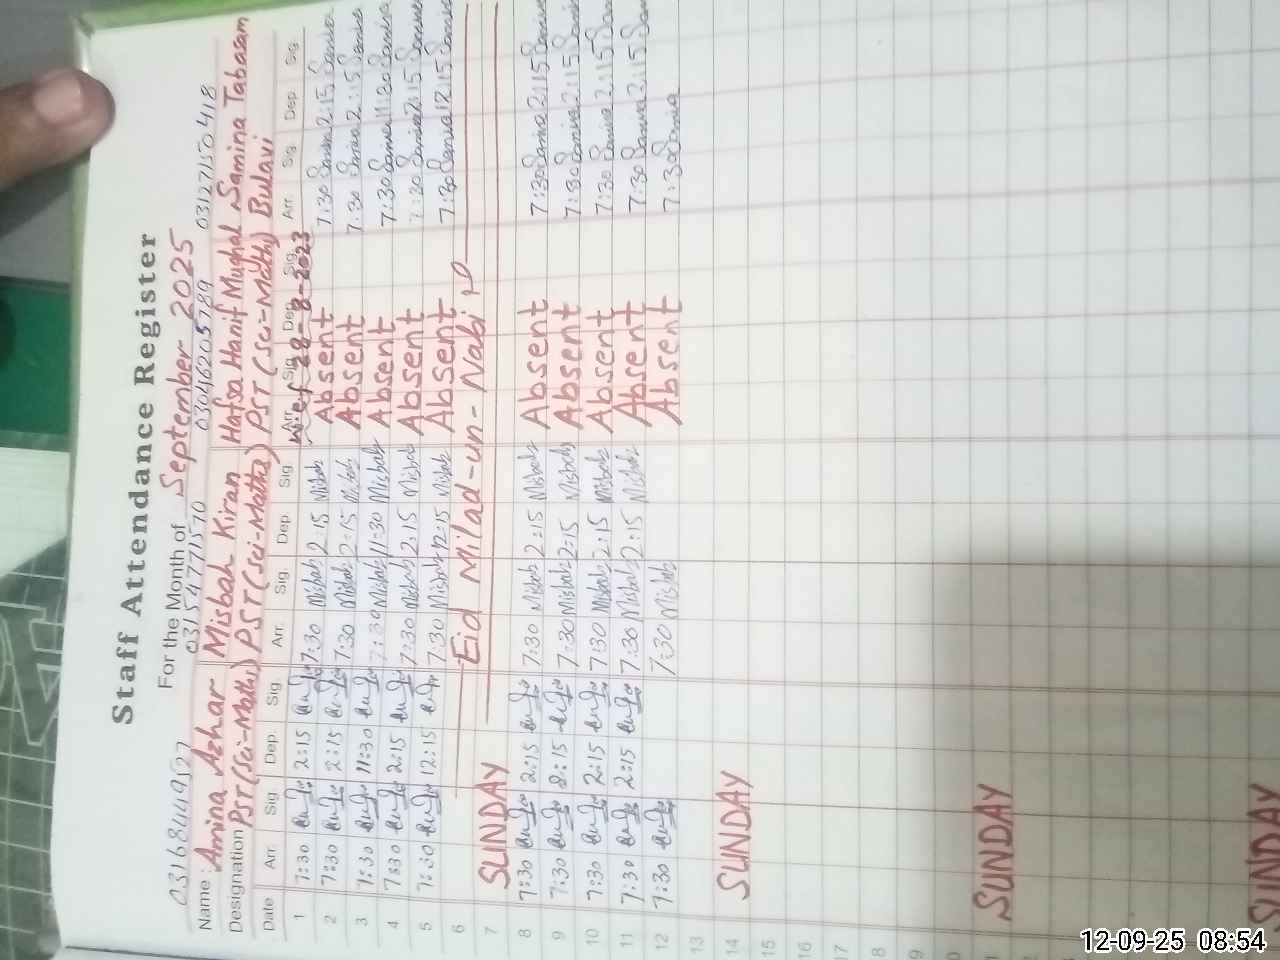 Staff Attendance Register
For the Month of September 2025
03168449527 03154771570 03046205789 03127150418
Name: Amina Azhar Misbah Kiran Hafsa Hanif Mughal Samina Tabasam
Designation PST (Sci-Maths) PST (Sci-Maths) PST (Sci-Maths) Bulavi
Date Arr. Sig. Dep. Sig. Arr. Sig. Dep. Sig. Arr. Sig. Dep. Sig. Arr. Sig. Dep. Sig.
w.e.f 28-8-2023
1 7:30 2:15 7:30 Misbah 2:15 Misbah Absent 7:30 Samina 2:15 Samina
2 7:30 2:15 7:30 Misbah 2:15 Misbah Absent 7:30 Samina 2:15 Samina
3 7:30 11:30 7:30 Misbah 11:30 Misbah Absent 7:30 Samina 11:30 Samina
4 7:30 2:15 7:30 Misbah 2:15 Misbah Absent 7:30 Samina 2:15 Samina
5 7:30 12:15 7:30 Misbah 12:15 Misbah Absent 7:30 Samina 12:15 Samina
6 Eid Milad-un-Nabi
7 SUNDAY
8 7:30 2:15 7:30 Misbah 2:15 Misbah Absent 7:30 Samina 2:15 Samina
9 7:30 2:15 7:30 Misbah 2:15 Misbah Absent 7:30 Samina 2:15 Samina
10 7:30 2:15 7:30 Misbah 2:15 Misbah Absent 7:30 Samina 2:15 Samina
11 7:30 2:15 7:30 Misbah 2:15 Misbah Absent 7:30 Samina 2:15
12 7:30 7:30 Misbah Absent 7:30 Samina
13
14 SUNDAY
15
16
17
SUNDAY
SUNDAY
12-09-25 08:54